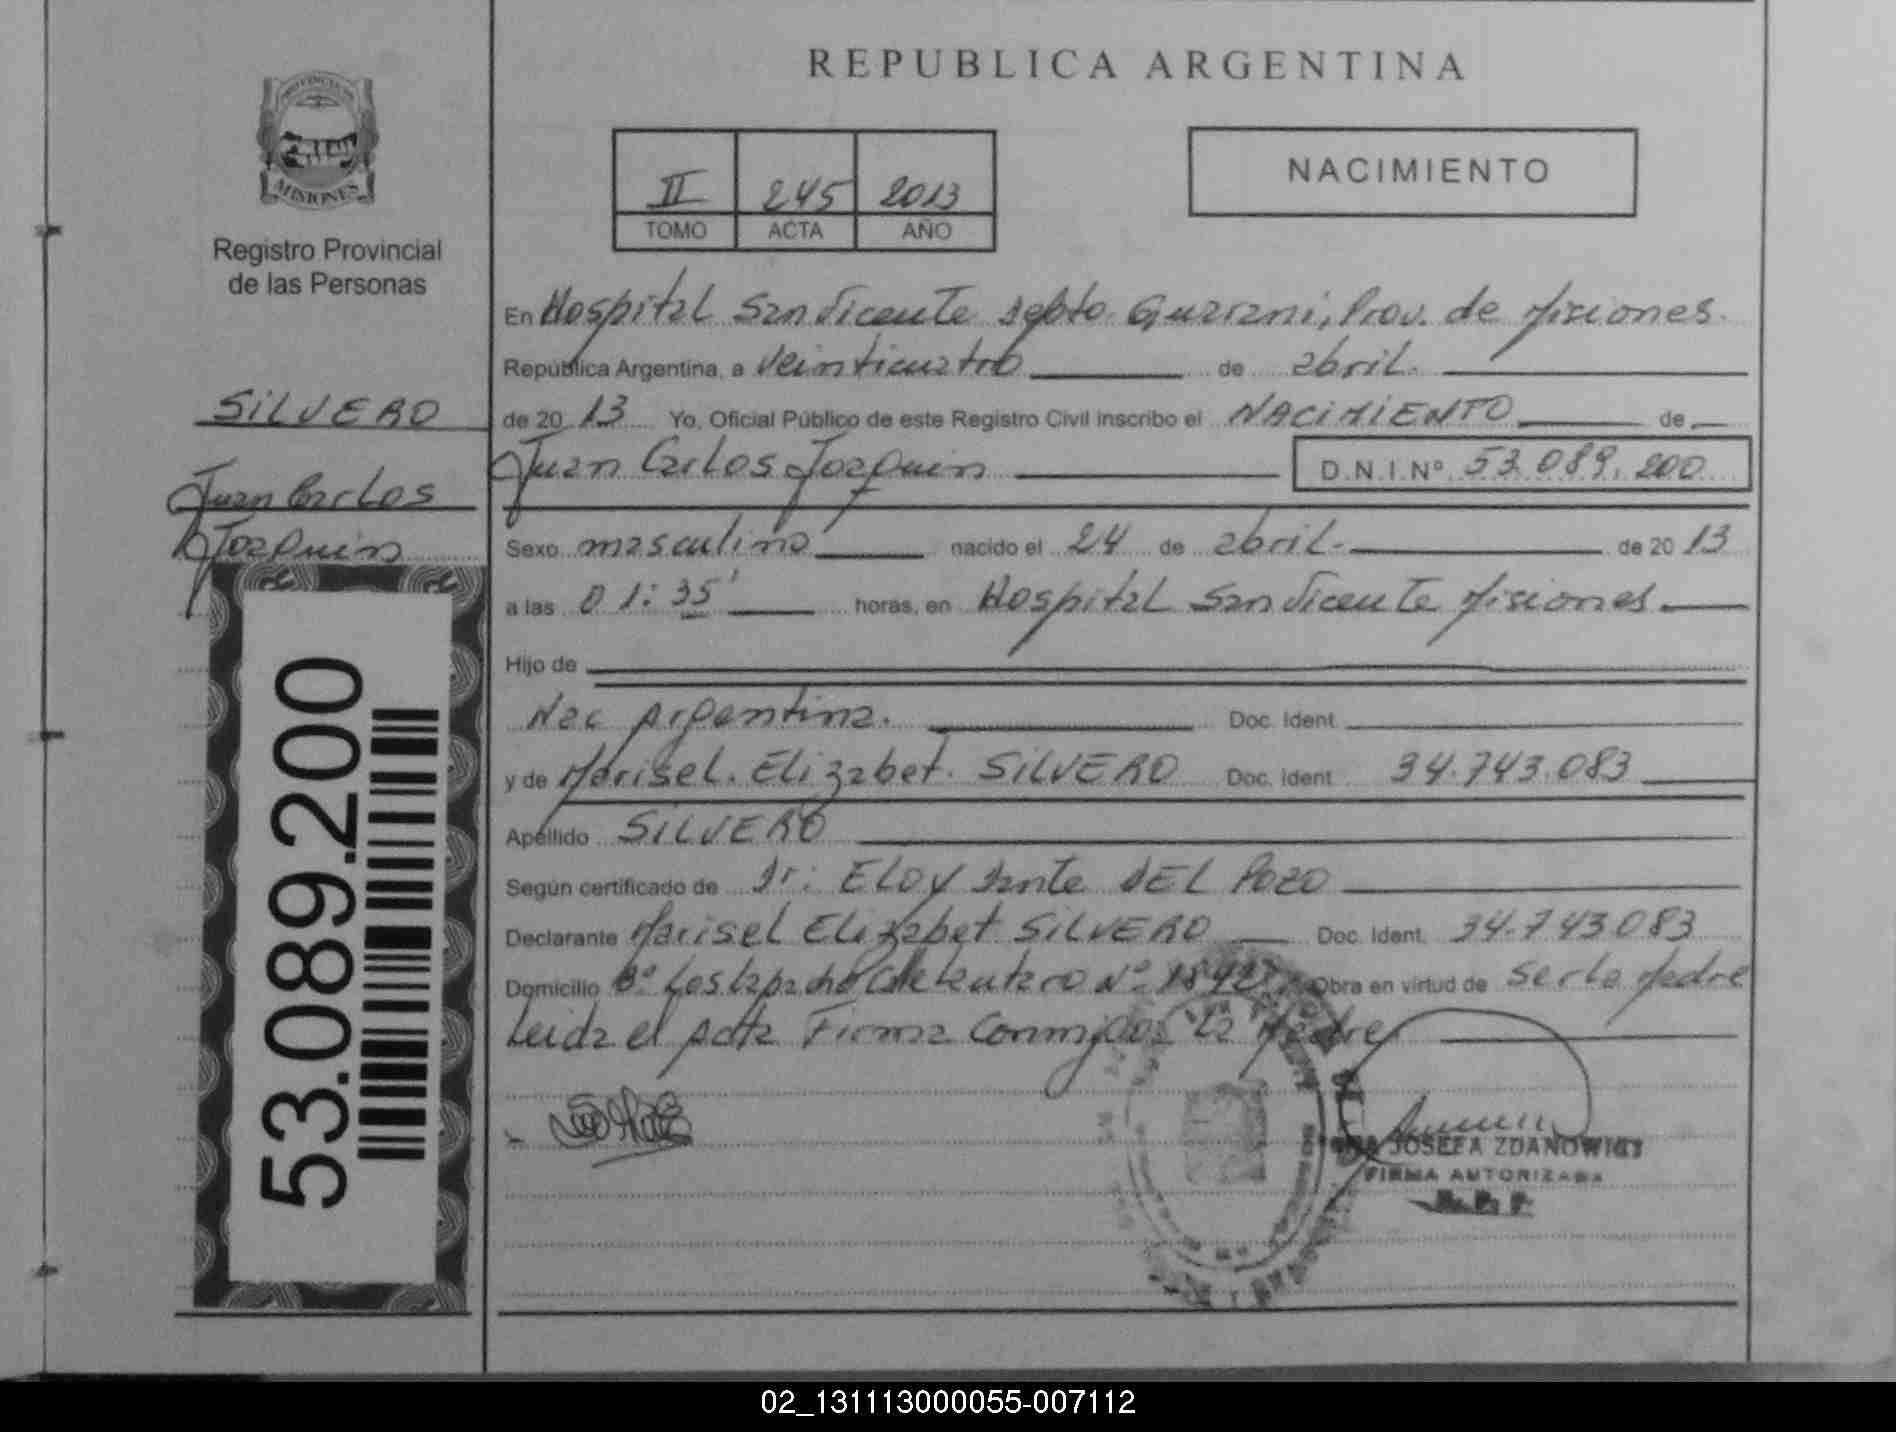 REPUBLICA ARGENTINA
PROVINCIA DE
MISIONES
Registro Provincial
de las Personas
II 245 2013
TOMO ACTA AÑO
NACIMIENTO
En Hospital San Vicente Depto. Guarani, Prov. de Misiones.
República Argentina, a Veinticuatro de abril.
SILVERO
de 20 13 Yo, Oficial Público de este Registro Civil inscribo el NACIMIENTO de
Juan Carlos Joaquin D.N.I.Nº 53.089.200
Juan Carlos
Joaquin
Sexo masculino nacido el 24 de abril.- de 20 13
a las 01:35' horas, en Hospital San Vicente Misiones
Hijo de
Nac Argentina. Doc. Ident.
y de Marisel. Elizabet. SILVERO Doc. Ident 34.743.083
Apellido SILVERO
Según certificado de Dr: ELOY Dante DEL POZO
Declarante Marisel Elizabet SILVERO Doc. Ident. 34.743.083
Domicilio Bº Los Lapacho Nº Obra en virtud de Serlo Madre
Leida el Acta Firma Conmigo: La Madre
JOSEFA ZDANOWICZ
FIRMA AUTORIZADA
R.P.P.
53.089.200
02_131113000055-007112